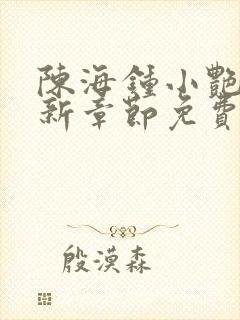 陳海鍾小艷
新章節免費
殷漠森